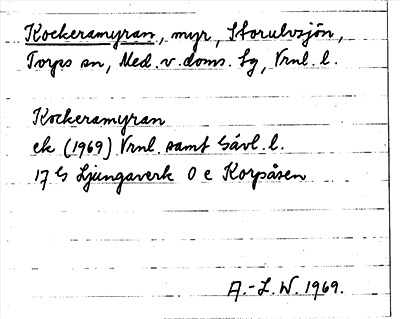 Kockeramyran, myr, Storulvsjön,
Torps sn, Med. v. doms. tg, Vrnl. l.
Kockeramyran
ek (1969) Vrnl. samt Gävl. l.
17 G Ljungaverk O e Korpåsen
A.-L. W. 1969.